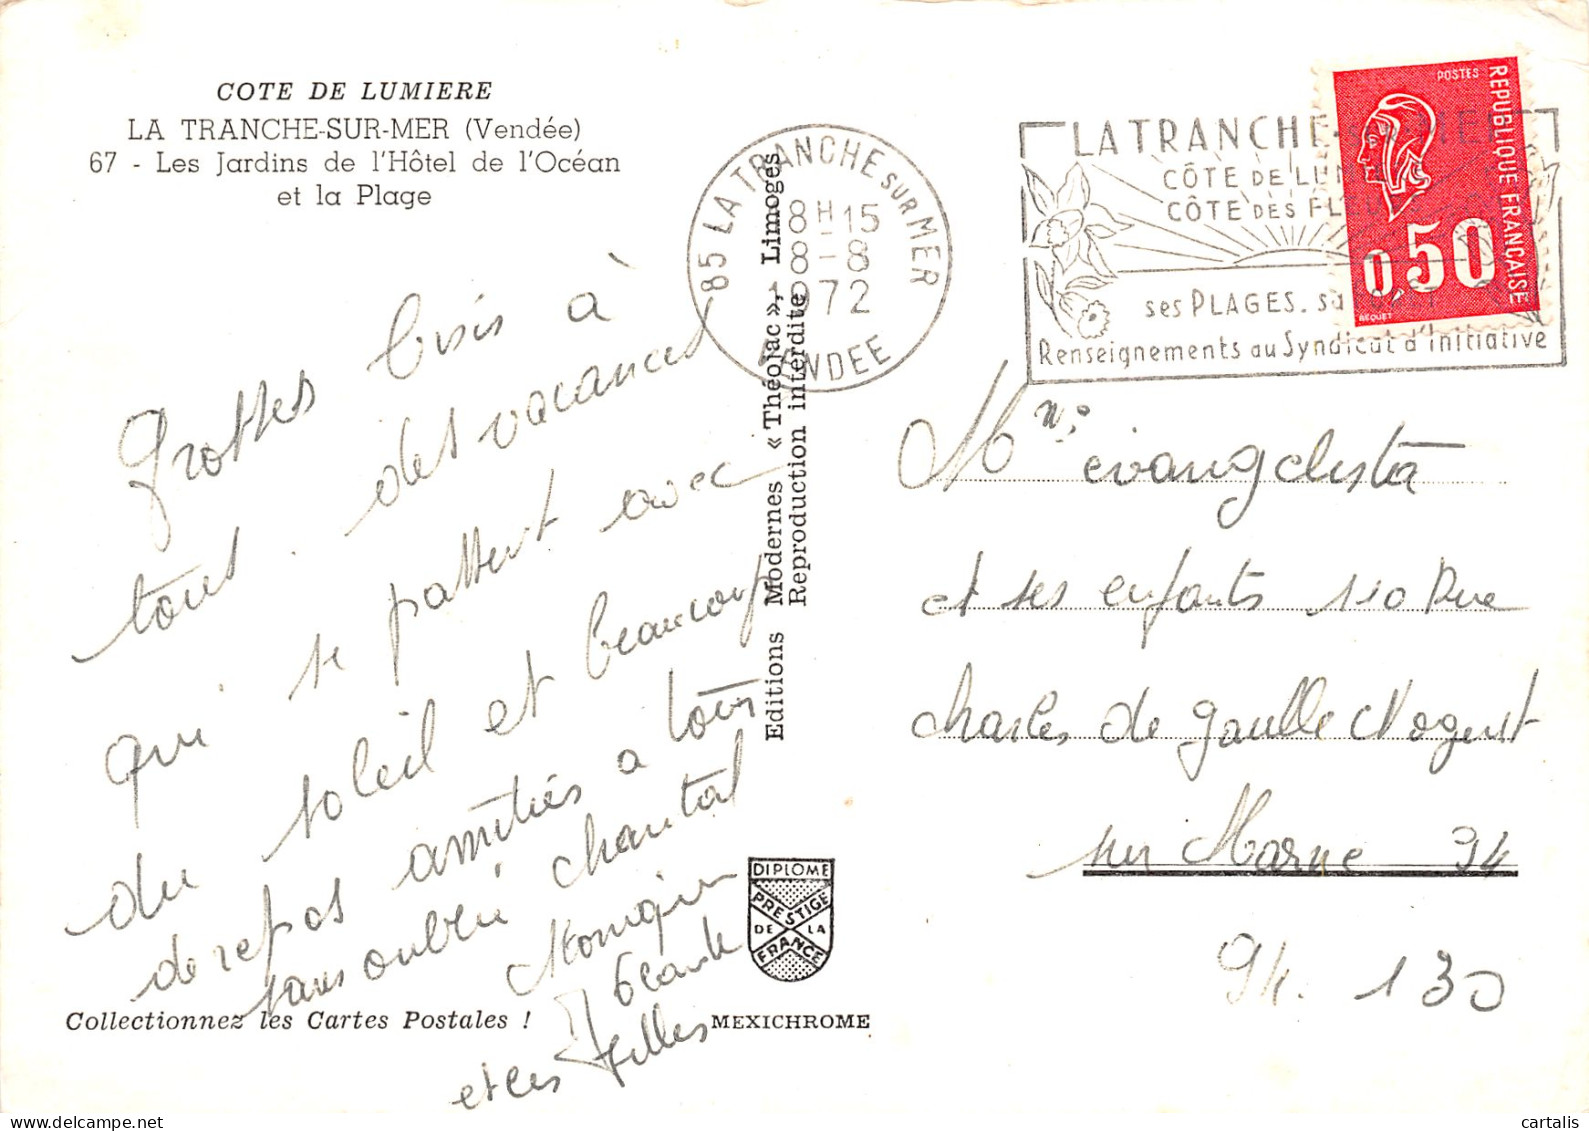 COTE DE LUMIERE
LA TRANCHE-SUR-MER (Vendée)
67 - Les Jardins de l'Hôtel de l'Océan
et la Plage
Grosses bisis à
tous. des vacances
qui se passent avec
du soleil et beaucoup
de repos amitiés a tous
sans oublié chantal
Monique
et les filles
Collectionnez les Cartes Postales !
Editions Modernes « Théojac », Limoges
Reproduction interdite
DIPLOME
PRESTIGE
DE LA
FRANCE
MEXICHROME
85 LA TRANCHE SUR MER
8H15
8-8
1972
VENDEE
LA TRANCHE-SUR-MER
CÔTE DE LUM
CÔTE DES FL
ses PLAGES. s
Renseignements au Syndicat d'Initiative
POSTES
REPUBLIQUE FRANÇAISE
0,50
BEQUET
Mr evangelista
et ses enfants 110 Rue
charles de gaulle Nogent
sur Marne 94
94. 130
cartalis
www.delcampe.net